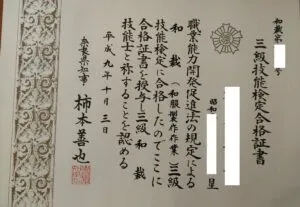 和裁第
号
三級技能検定合格証書
昭和
生
職業能力開発促進法の規定による
和裁(和服製作作業)三級
技能検定に合格したのでここに
合格証書を授与し三級 和裁
技能士と称することを認める
平成九年十月三日
奈良県知事 柿本善也